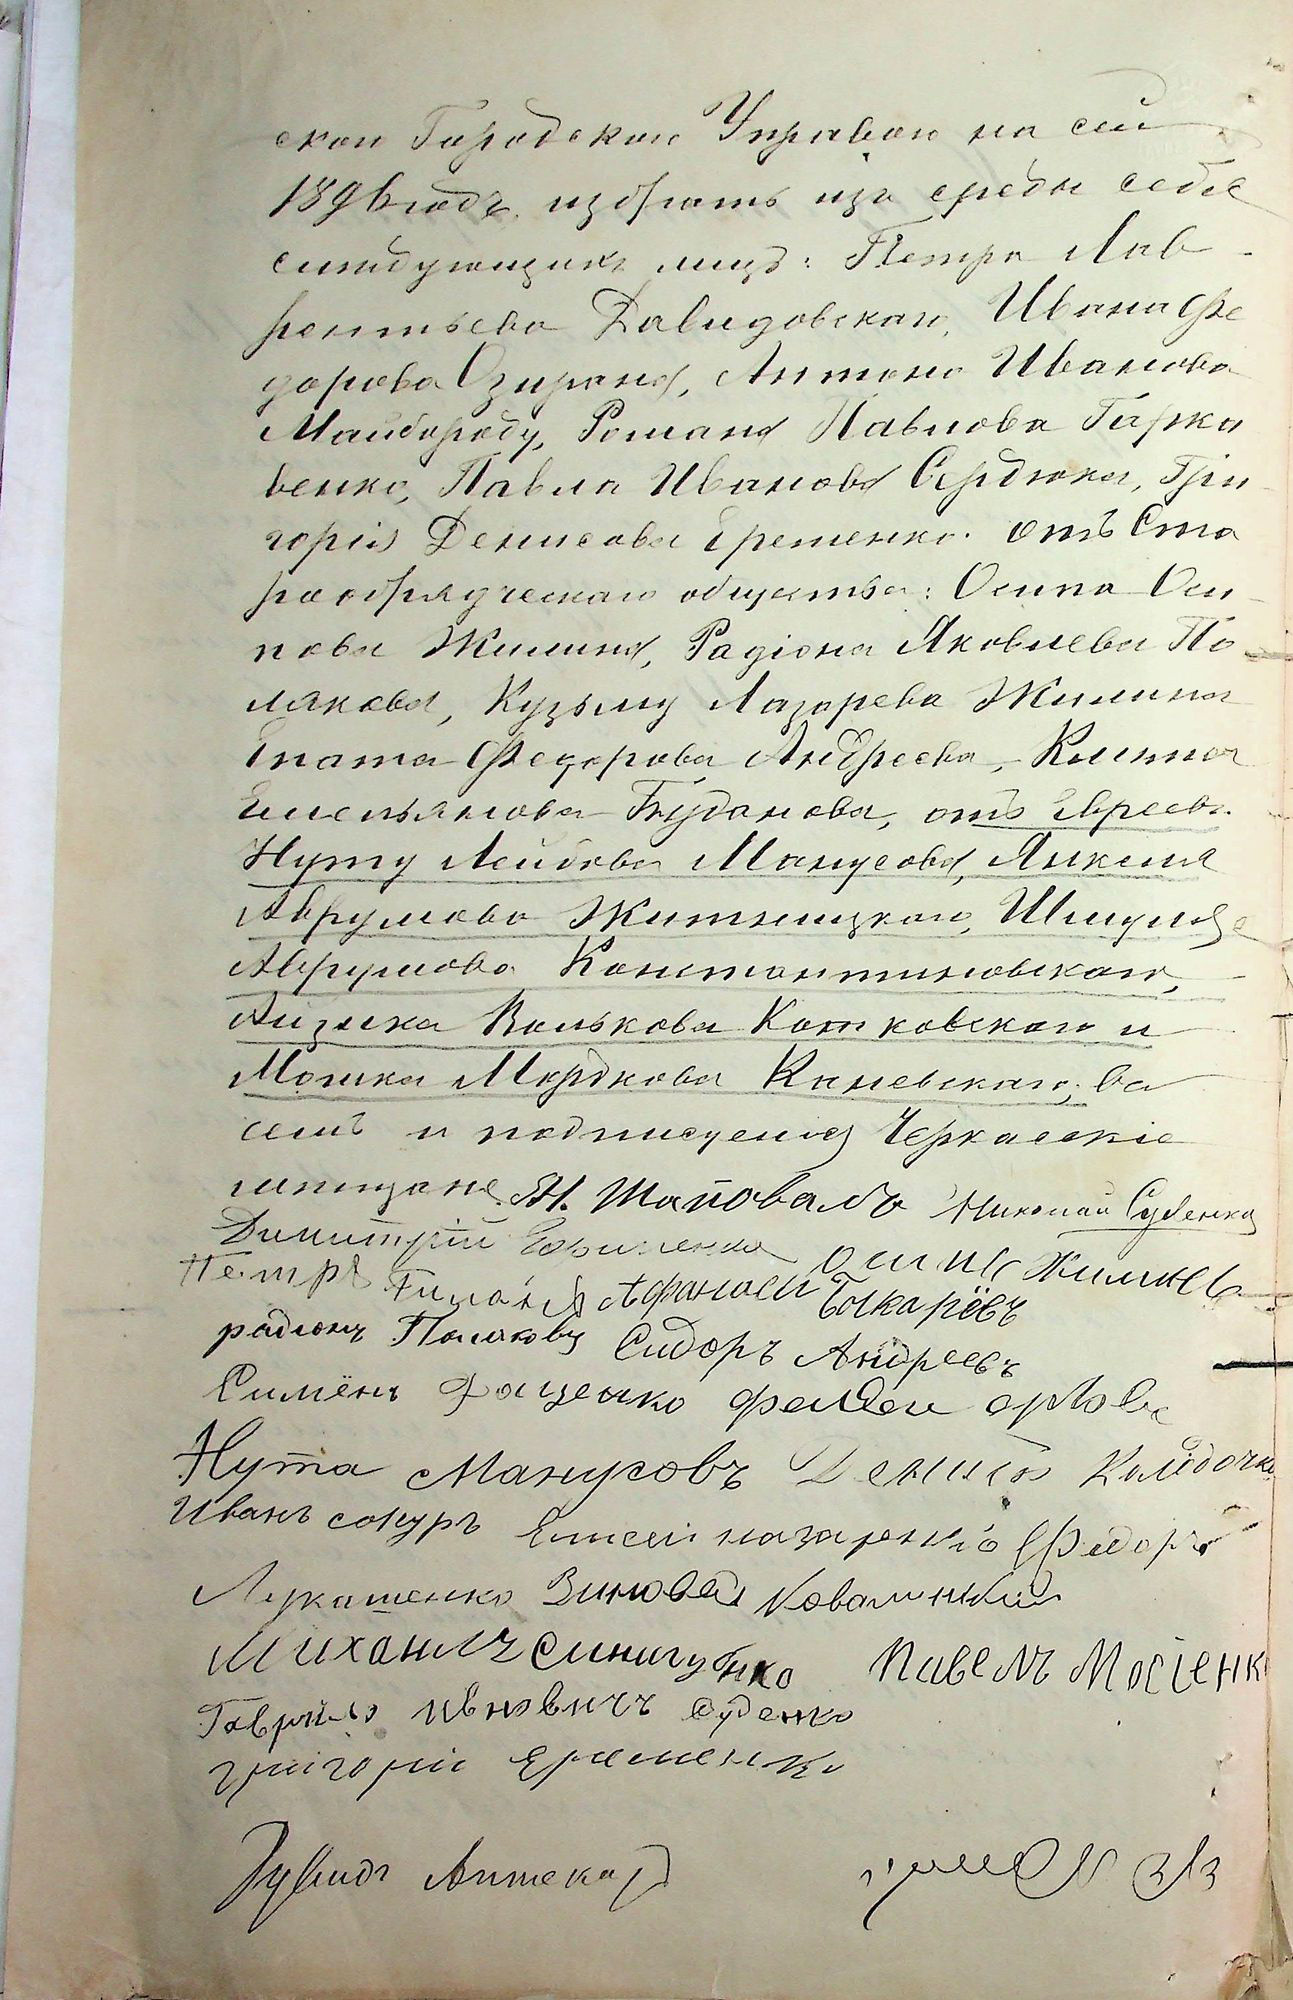 ской Городской Управою на сей
1896 годъ избрать изъ среды себя
слѣдующихъ лицъ: Петра Лав-
рентьева Давидовскаго, Ивана Фе
дорова Озирана, Антона Иванова
Майбороду, Романа Павлова Гарка
венко, Павла Иванова Сердюка, Гри-
горія Денисова Еременко. отъ Ста
рообрядческаго общества: Осипа Оси-
пова Жилина, Радіона Яковлева По-
лякова, Кузьму Лазарева Жилина
Ипата Федорова Андреева, Клима
Емельянова Буданова, отъ Евреевъ
Нуту Лейбова Манусова, Янкеля
Аврумова Житницкаго, Шмуля
Аврумова Константиновскаго,
Айзика Волькова Котковскаго и
Мошка Мордкова Каневскаго, въ
семъ и подписуемся Черкасскіе
мѣщане. Н. Шаповалъ Николай Суденко
Димитрій Ефименко осипъ Жилинъ
Петръ Афанасий Токарёвъ
радионъ Поляковъ Сидоръ Андреевъ
Симёнъ Фаценко орловъ
Нута Манусовъ Денисъ Колодочка
Иванъ сокуръ Елисей назаренко Фидоръ
Лукашенко Зиновей Ковалинкий
Михаилъ Синигубнко Павелъ Мосіенк
Гаврило Ивновичъ Суденко
григорій еременко
Зувидъ Аптекар